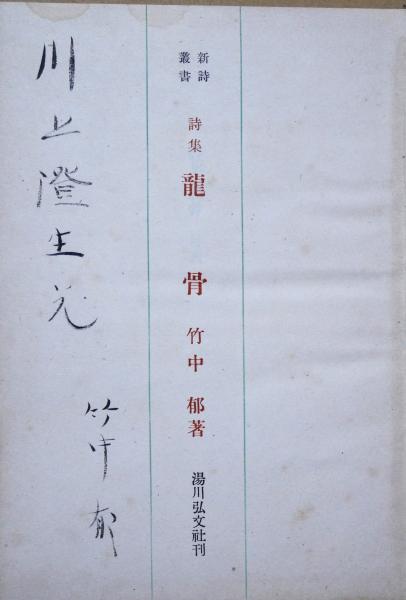 新詩
叢書
詩集
龍骨
竹中郁著
湯川弘文社刊
川上澄生兄
竹中郁